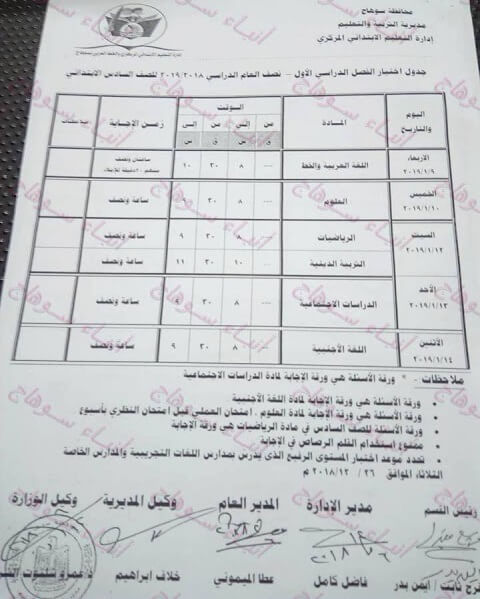 محافظة سوهاج
مديرية التربية والتعليم
إدارة التعليم الابتدائي المركزي
جدول اختبار الفصل الدراسي الأول - نصف العام الدراسي ٢٠١٩/٢٠١٨ للصف السادس الابتدائي
اليوم والتاريخ المادة التوقيت زمن الإجابة
من إلى من إلى
ق س ق س
الأربعاء ٢٠١٩/١/٩ اللغة العربية والخط --- ٨ ٣٠ ١٠ ساعتان ونصف
الخميس ٢٠١٩/١/١٠ العلوم --- ٨ ٣٠ ساعة ونصف
السبت ٢٠١٩/١/١٢ الرياضيات --- ٨ ٣٠ ٩ ساعة ونصف
التربية الدينية --- ١٠ ٣٠ ١١ ساعة ونصف
الأحد ٢٠١٩/١/١٣ الدراسات الاجتماعية --- ٨ ٣٠ ٩ ساعة ونصف
الأثنين ٢٠١٩/١/١٤ اللغة الأجنبية --- ٨ ٣٠ ٩ ساعة ونصف
ملاحظات - * ورقة الأسئلة هي ورقة الإجابة لمادة الدراسات الاجتماعية
• ورقة الأسئلة هي ورقة الإجابة لمادة اللغة الأجنبية
• ورقة الأسئلة هي ورقة الإجابة لمادة العلوم . امتحان العملي قبل امتحان النظري بأسبوع
• ورقة الأسئلة للصف السادس في مادة الرياضيات هي ورقة الإجابة
• ممنوع استخدام القلم الرصاص في الاجابة
• تحدد موعد اختبار المستوى الرفيع الذي يدرس بمدارس اللغات التجريبية والمدارس الخاصة
الثلاثاء الموافق ٢٠١٨/١٢/٢٦ م
رئيس القسم مدير الإدارة المدير العام وكيل المديرية وكيل الوزارة
فرج ثابت / ايمن بدر فاضل كامل عطا الميموني خلاف ابراهيم
أنباء سوهاج